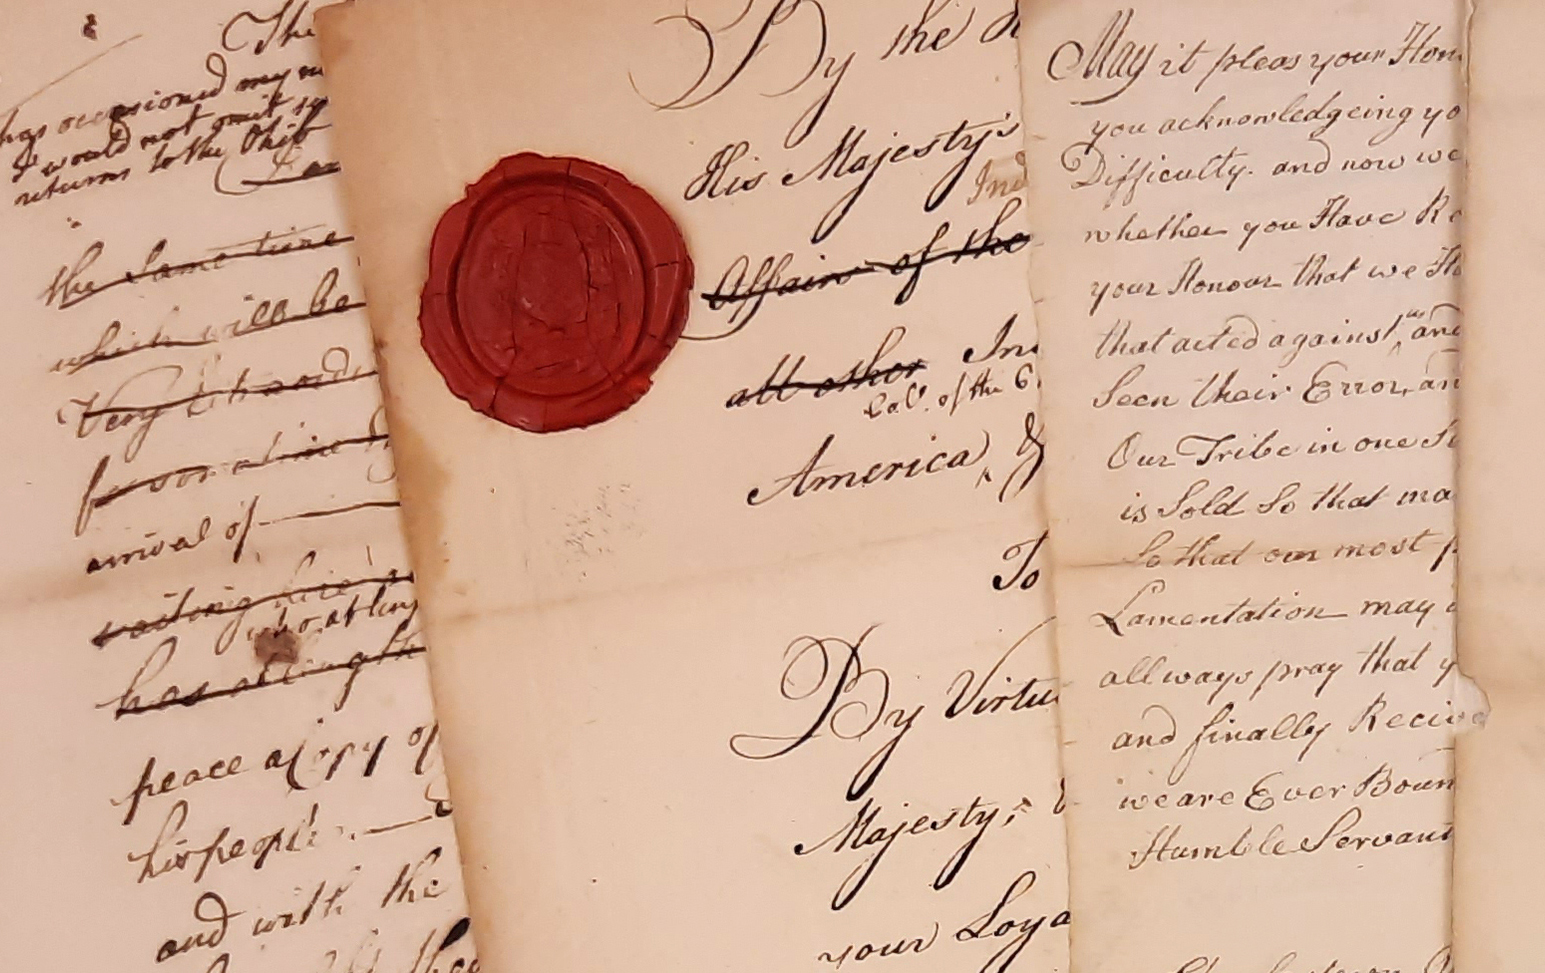 The
has occasioned my
I would not omit
returns to the Chief
the same time
which will be
Very
favor a time
arrival of
waiting here
who at leng
has at length
peace a Copy of
his people
and with the
By the H
His Majesty's
Ind
Affairs of the
all other In
Col. of the 6
America, &
To
By Virtu
Majesty,
your Loya
May it pleas your Hon
you acknowledgeing yo
Difficulty. and now we
whether you Have Re
your Honour that we Ho
that acted against, and
Seen their Error, an
Our Tribe in one S
is Sold So that ma
So that our most p
Lamentation may
all ways pray that y
and finally Reciv
we are Ever Boun
Humble Servant